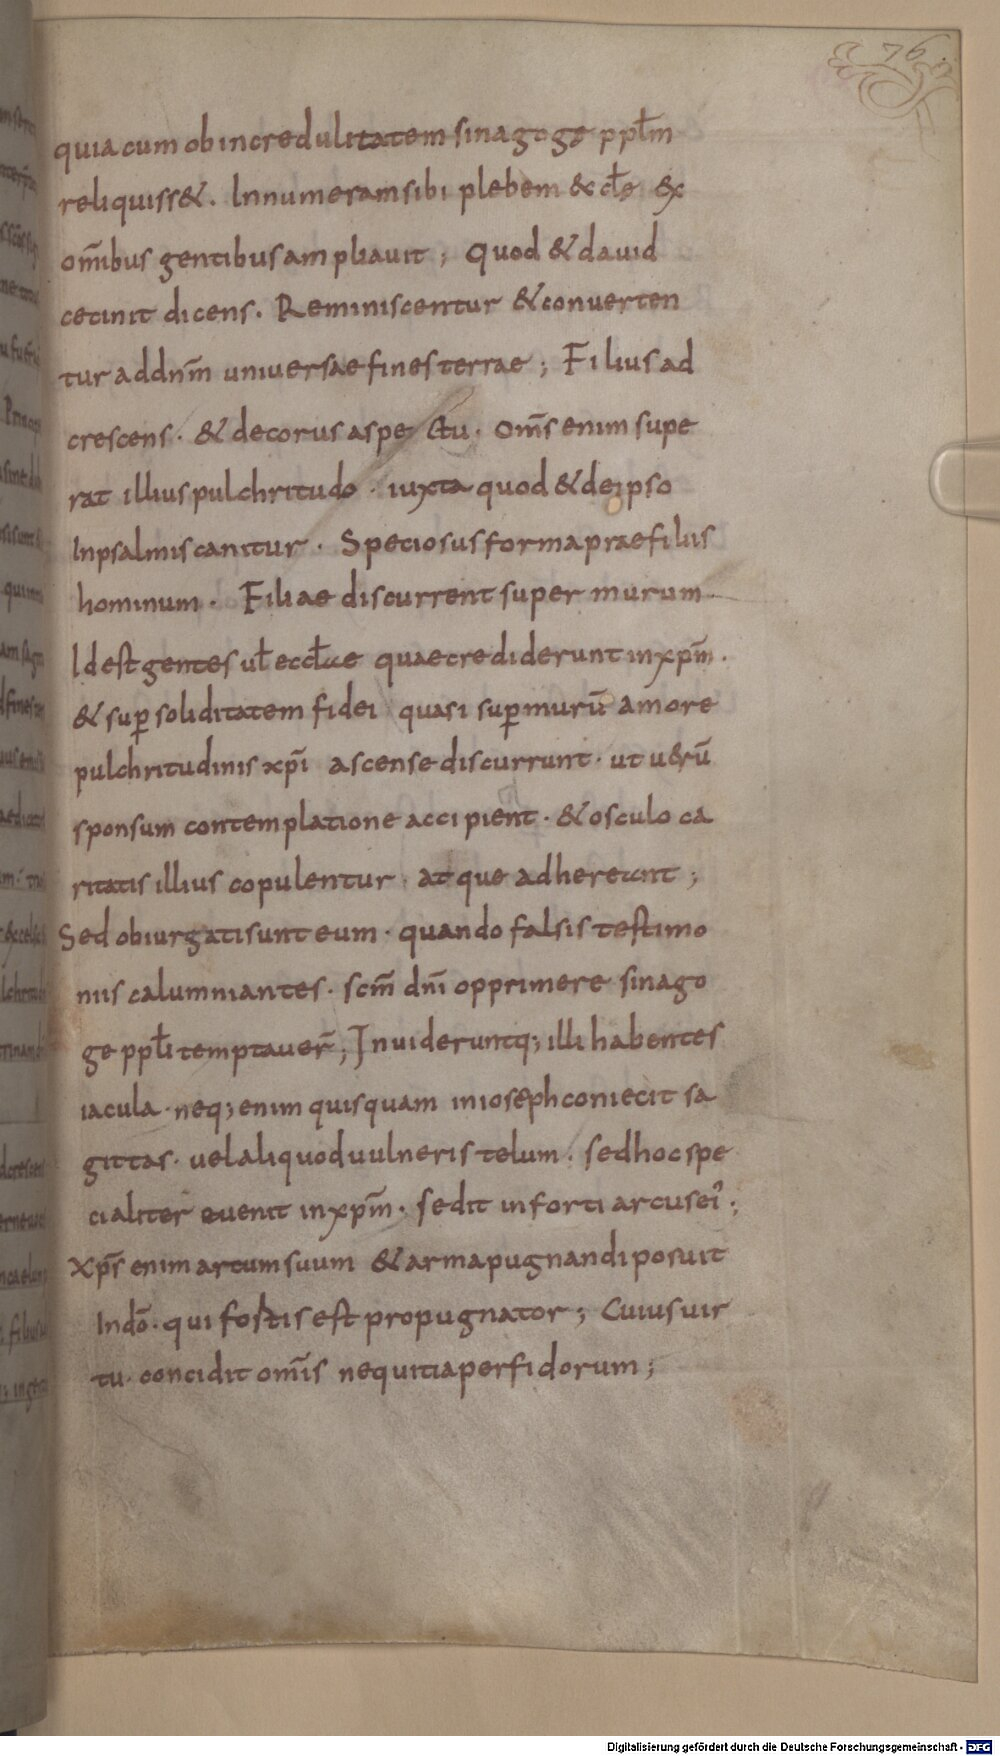 76.
quia cum ob incredulitatem sinagoge ppl̄m
reliquiss&. Innumeram sibi plebem & ccl̄ę ex
om̄ibus gentibus ampliauit; Quod & dauid
cecinit dicens. Reminiscentur & conuerten
tur ad dn̄m uniuersae fines terrae; Filius ad
crescens. & decorus aspectu. om̄s enim supe
rat illius pulchritudo. iuxta quod & de ipso
In psalmis canitur. Speciosus forma prae filiis
hominum. Filiae discurrent super murum
Id est gentes ul̄ eccl̄iae quae crediderunt in xp̄m.
& suꝑ soliditatem fidei quasi suꝑ murū amore
pulchritudinis xp̄i ascense discurrunt. ut u&rū
sponsum contemplatione accipient. & osculo ca
ritatis illius copulentur. atque adhereant;
Sed obiurgati sunt eum. quando falsis testimo
niis calumniantes. sc̄m dn̄i opprimere sinago
ge ppl̄i temptauer̄; Inuideruntq; illi habentes
iacula. neq; enim quisquam in ioseph coniecit sa
gittas. uel aliquod uulneris telum. sed hoc spe
cialiter euenit in xp̄m. sedit in forti arcus ei᾽;
Xp̄s enim arcum suum & arma pugnandi posuit
In dō. qui fortis est propugnator; Cuius uir
tu. concidit om̄is nequitia perfidorum;
Digitalisierung gefördert durch die Deutsche Forschungsgemeinschaft - DFG